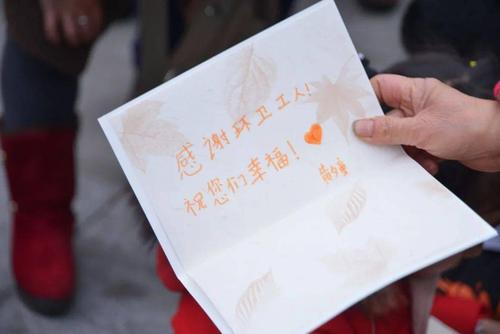 感谢环卫工人!
祝您们幸福!